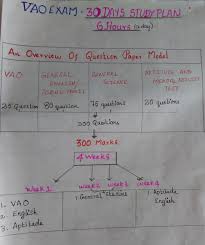 VAO EXAM - 30 DAYS STUDY PLAN
6 Hours (a day)
An Overview Of Question Paper Model
VAO GENERAL ENGLISH/ GENERAL SCIENCE APTITUDE AND MENTAL ABILITY TEST
25 Question 80 question 75 questions 20 questions
200 Questions
300 Marks
4 Weeks
Week 1 Week 2 Week 3 Week 4
1. VAO 1. General Studies 1. Aptitude
2. English English
3. Aptitude